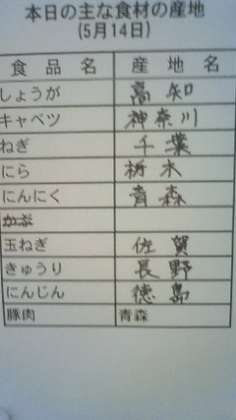 本日の主な食材の産地
(5月14日)
食品名 産地名
しょうが 高知
キャベツ 神奈川
ねぎ 千葉
にら 栃木
にんにく 青森
かぶ
玉ねぎ 佐賀
きゅうり 長野
にんじん 徳島
豚肉 青森